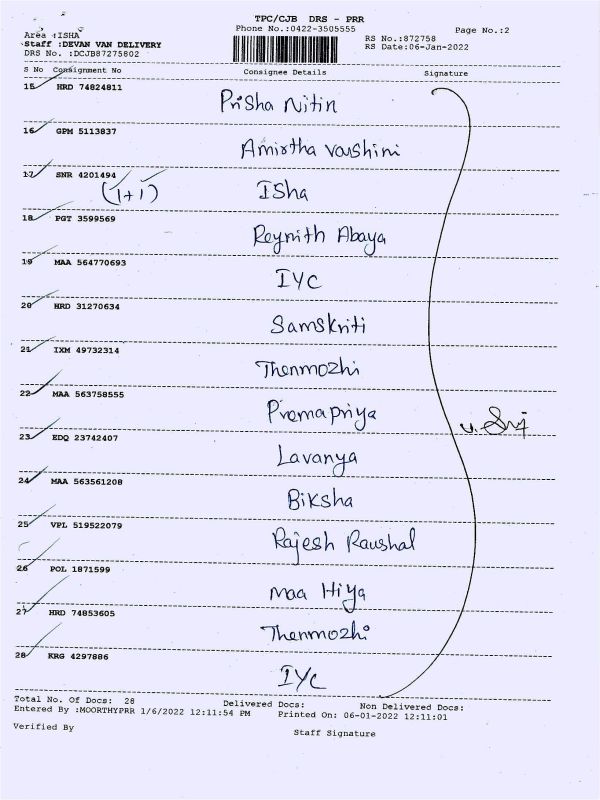 TPC/CJB DRS - PRR
Phone No.:0422-3505555
Page No.:2
Area :ISHA
RS No.:872758
Staff :DEVAN VAN DELIVERY
RS Date:06-Jan-2022
DRS No. :DCJB87275802
S No Consignment No Consignee Details Signature
15 HRD 74824811
Prisha Nitin
16 GPM 5113837
Amirtha Varshini
17 SNR 4201494
(1+1) Isha
18 PGT 3599569
Reynith Abaya
19 MAA 564770693
IYC
20 HRD 31270634
Samskriti
21 IXM 49732314
Thenmozhi
22 MAA 563758555
Premapriya
23 EDQ 23742407
Lavanya
24 MAA 563561208
Biksha
25 VPL 519522079
Rajesh Raushal
26 POL 1871599
Maa Hiya
27 HRD 74853605
Thenmozhi
28 KRG 4297886
IYC
Total No. Of Docs: 28 Delivered Docs: Non Delivered Docs:
Entered By :MOORTHYPRR 1/6/2022 12:11:54 PM Printed On: 06-01-2022 12:11:01
Verified By Staff Signature